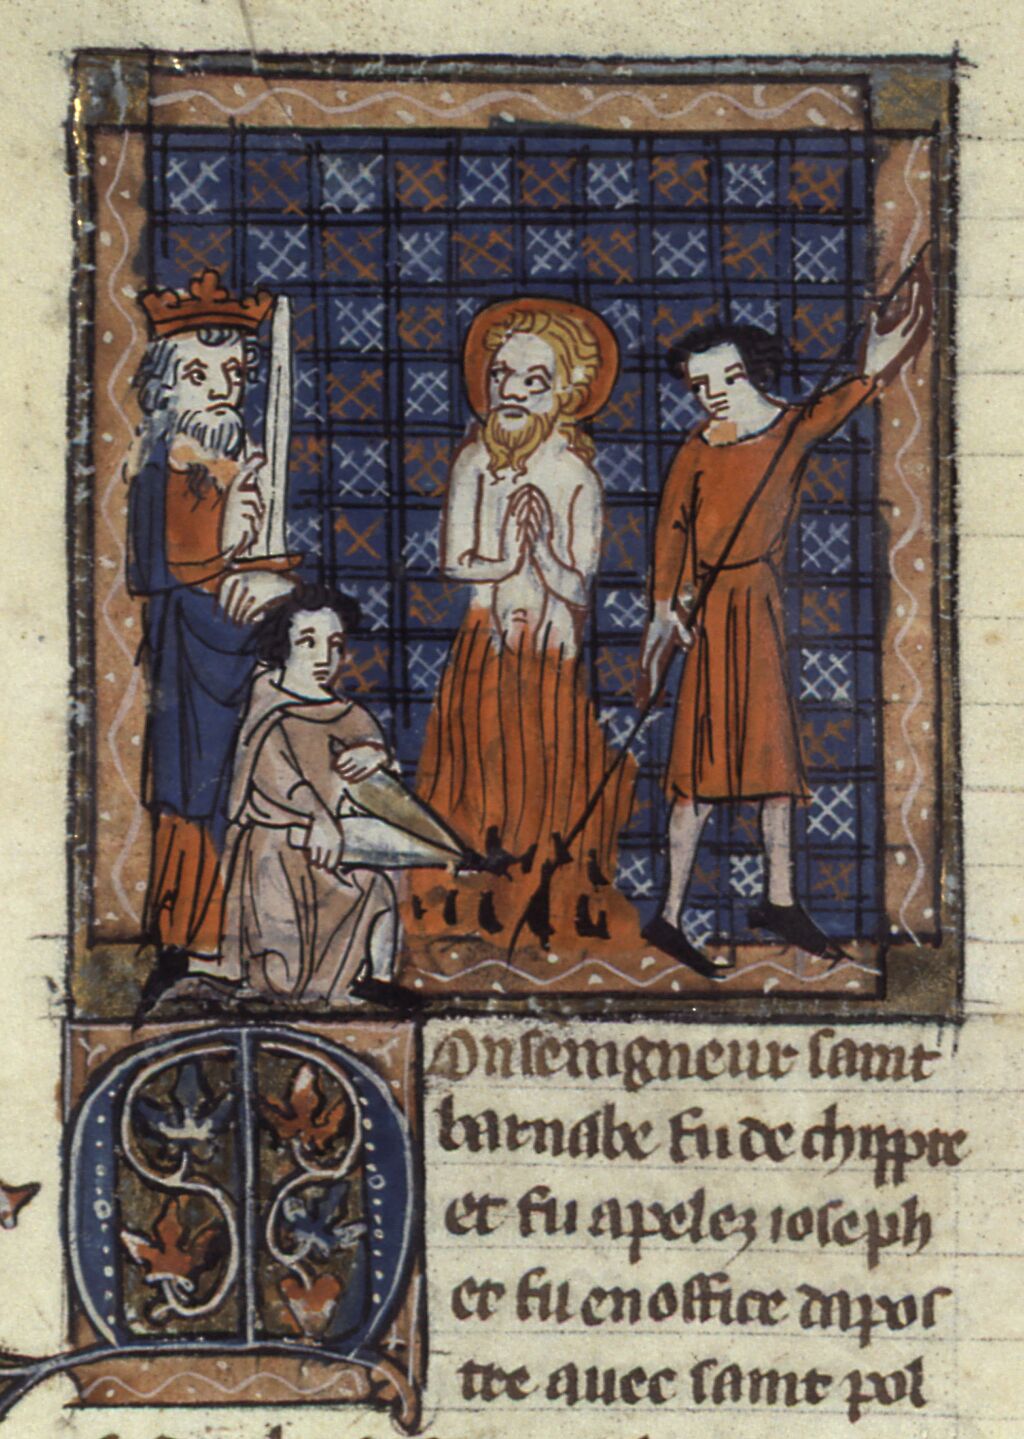 Monseingneur saint
barnabe fu de chippre
et fu apelez ioseph
et fu en office dapos
tre auec saint pol